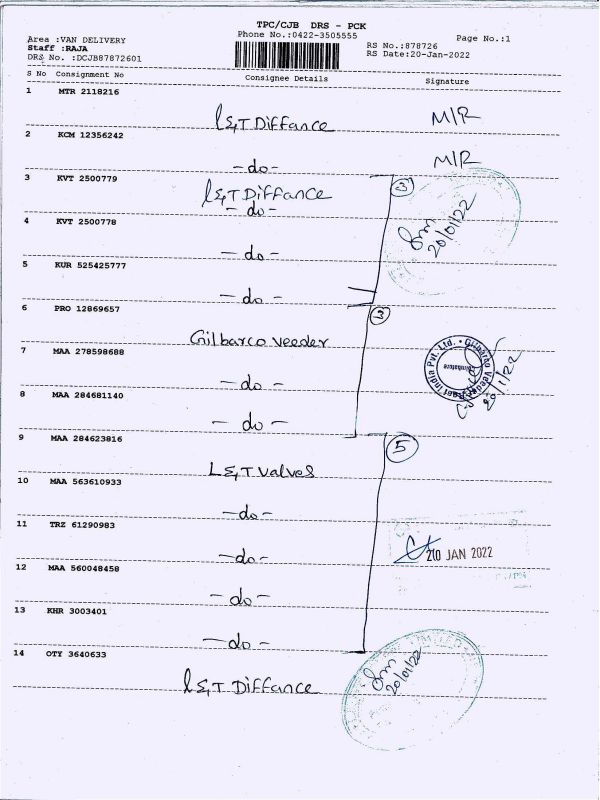 TPC/CJB DRS - PCK
Area :VAN DELIVERY
Phone No.:0422-3505555
Page No.:1
Staff :RAJA
RS No.:878726
DRS No. :DCJB87872601
RS Date:20-Jan-2022
S No Consignment No Consignee Details Signature
1 MTR 2118216
L&T Diffance M/R
2 KCM 12356242
-do- M/R
3 KVT 2500779
3
L&T Diffance
-do-
4 KVT 2500778
20/01/22
-do-
5 KUR 525425777
-do-
6 PRO 12869657
3
Gilbarco Veeder
7 MAA 278598688
Gilbarco Veeder Root India Pvt. Ltd.
Coimbatore
20/1/22
-do-
8 MAA 284681140
-do-
9 MAA 284623816
5
L&T Valves
10 MAA 563610933
-do-
11 TRZ 61290983
-do-
20 JAN 2022
12 MAA 560048458
-do-
13 KHR 3003401
-do-
14 OTY 3640633
L&T Diffance
20/01/22